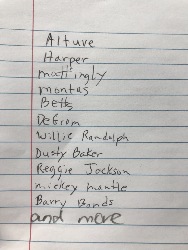 Altuve
Harper
mattingly
montas
Betts
DeGrom
Willie Randolph
Dusty Baker
Reggie Jackson
mickey mantle
Barry Bonds
and more